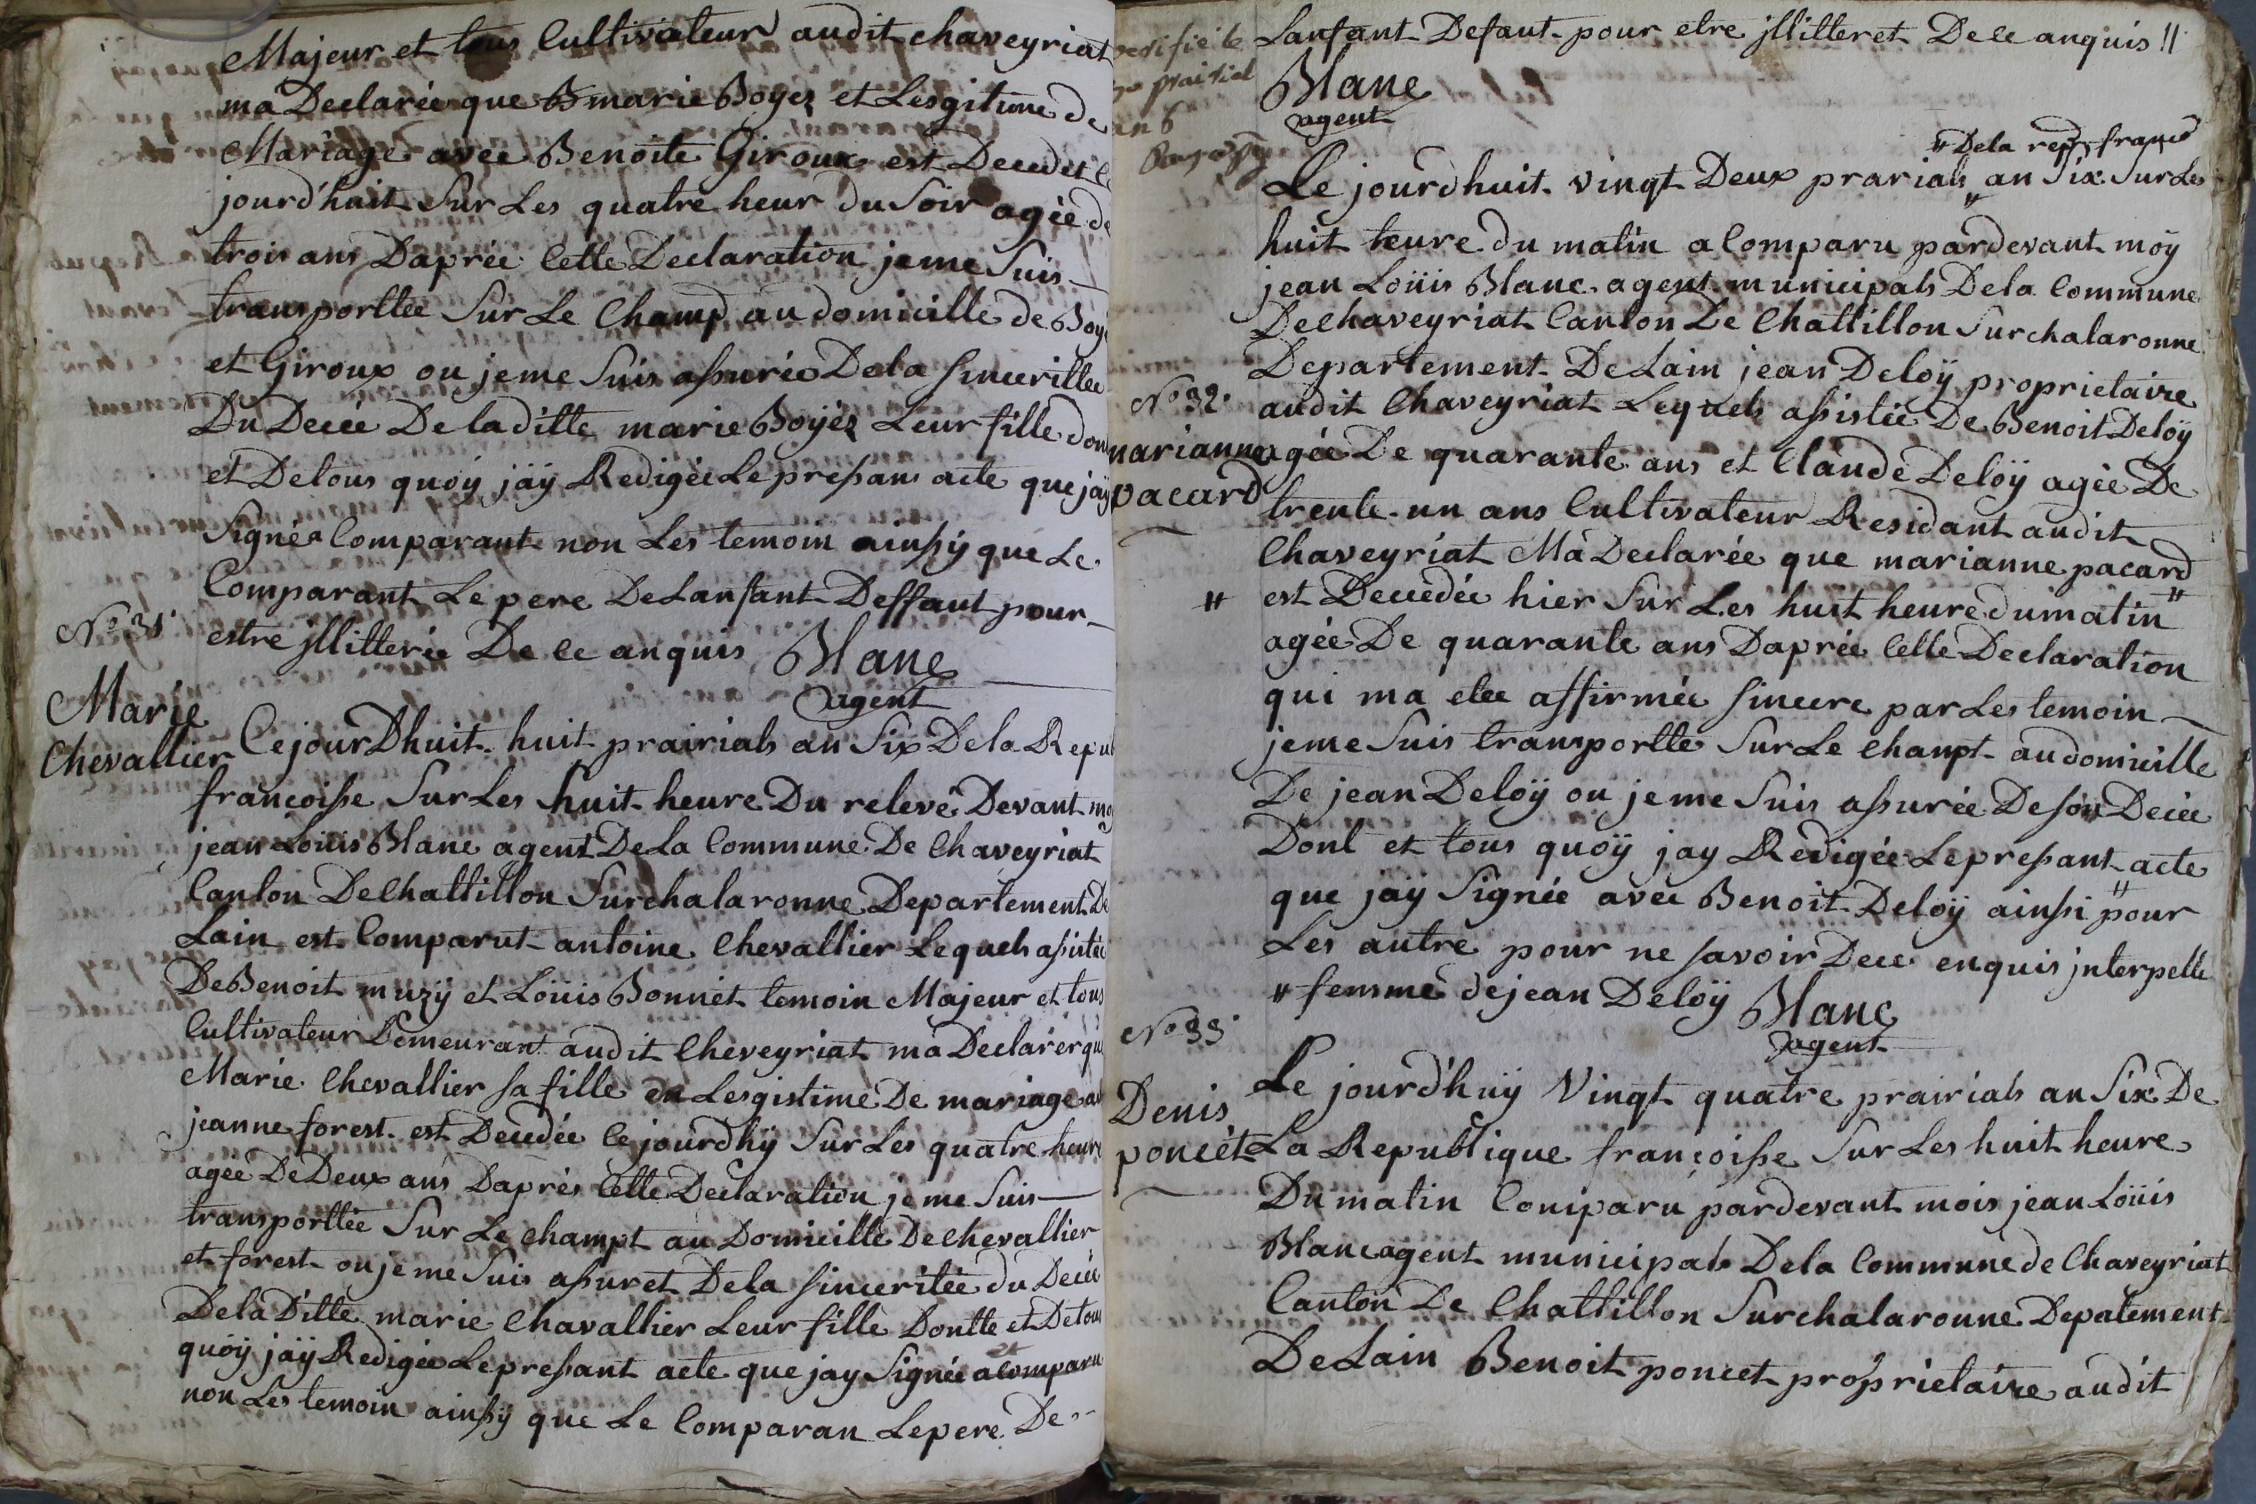 Majeur et tous Cultivateur audit chaveyriat
ma Declarée que marie Boyez et Lesgitime de
Mariage avec Benoite Giroux est Decedet
jourd'huit Sur Les quatre heur du Soir agée de
trois ans Daprée Cette Declaration jeme Suis
transporttée Sur Le Champ au domicille de Boye
et Giroux ou jeme Suis assurée Dela sincerittee
Du Decée De laditte marie Boyéz Leur fille don
et Detous quoÿ jaÿ Redigée Le pressans acte que jaÿ
Signéa Comparant non Les temoin ainsÿ que Le
Comparant Le pere De Lanfant Deffaut pour
estre jllitterée De ce anquis Blanc
agent
No 31
Marie
Chevallier
Cejour Dhuit huit prairials an Six De la Repub
francoisse Sur Les huit heure Du relevé Devant moy
jean Loüis Blanc agent De La Commune De Chaveyriat
Canton De Chattillon Surchalaronne Departement De
Lain est Comparut antoine Chevallier Lequels asistée
De Benoit muzÿ et Loüis Bonnet temoin Majeur et tous
Cultivateur Demeurant audit Cheveyriat ma Declarér que
Marie Chevallier sa fille en Lesgistime De mariage av
jeanne forest est Decedée Ce jourdhÿ Sur Les quatre heure
agée De Deux ans Daprés Cette Declaration jeme Suis
transporttée Sur Le champt au Domicille De Chevallier
et forest ou jeme Suis assuret Dela sinceritée du Decée
Dela Ditte marie Chavallier Leur fille Dontte et Detous
quoÿ jaÿ Redigée Lepressant acte que jay Signée a Comparu
non Les temoin ainsÿ que Le Comparan Le pere De
Lanfant Defaut pour etre jllitteret De ce anquis
Blanc
agent
verifie le
prairial
an 6
# Dela repu franc
Le jourdhuit vingt Deux prarials an Six Sur Les
huit heure du matin a Comparu pardevant moÿ
jean Loüis Blanc agent municipals Dela Commune
De Chaveyriat Canton De Chattillon Surchalaronne
Departement De Lain jean Deloÿ proprietaire
No 32
marianne
pacard
audit Chaveyriat Lequels assistée De Benoit Deloÿ
agée De quarante ans et Claude Deloÿ agée De
trente un ans Cultivateur Residant audit
Chaveyriat Ma Declarée que marianne pacard #
# est Decedée hier Sur Les huit heure du matin
agée De quarante ans Daprée Cette Declaration
qui ma etee affirmée sincere par Les temoin
jeme Suis transportte Sur Le champt au domicille
De jean Deloÿ ou jeme Suis assurée De son Decée
Dont et tous quoÿ jay Redigée Lepressant acte
que jaÿ Signée avec Benoit Deloÿ ainssi # pour
Les autre pour ne savoir De ce enquis jnterpelle
# femme de jean Deloÿ Blanc
agent
No 33
Denis
poncet
Le jourd'huÿ Vingt quatre prairials an Six De
La Republique francoisse Sur Les huit heure
Du matin Comparu pardevant mois jean Loüis
Blanc agent municipals Dela Commune de Chaveyriat
Canton De Chattillon Surchalaronne Depatement
De Lain Benoit poncet proprietaire audit